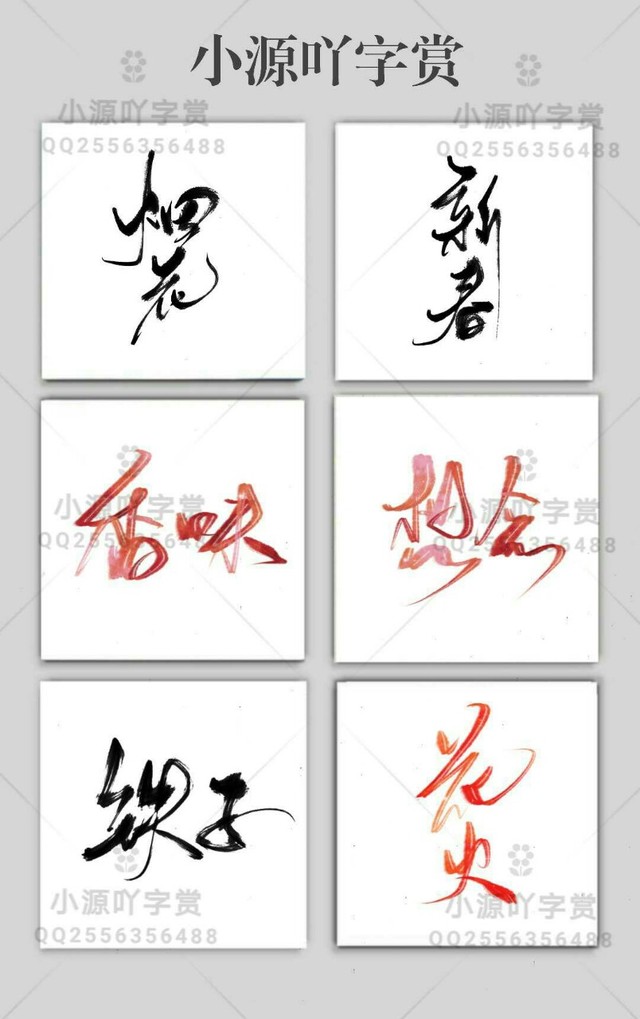 小源吖字赏
小源吖字赏
小源吖字赏
QQ2556356488
QQ2556356488
烟花
新春
小源吖字赏
小源吖字赏
QQ2556356488
QQ2556356488
香味
想念
铁子
花火
小源吖字赏
小源吖字赏
QQ2556356488
QQ2556356488